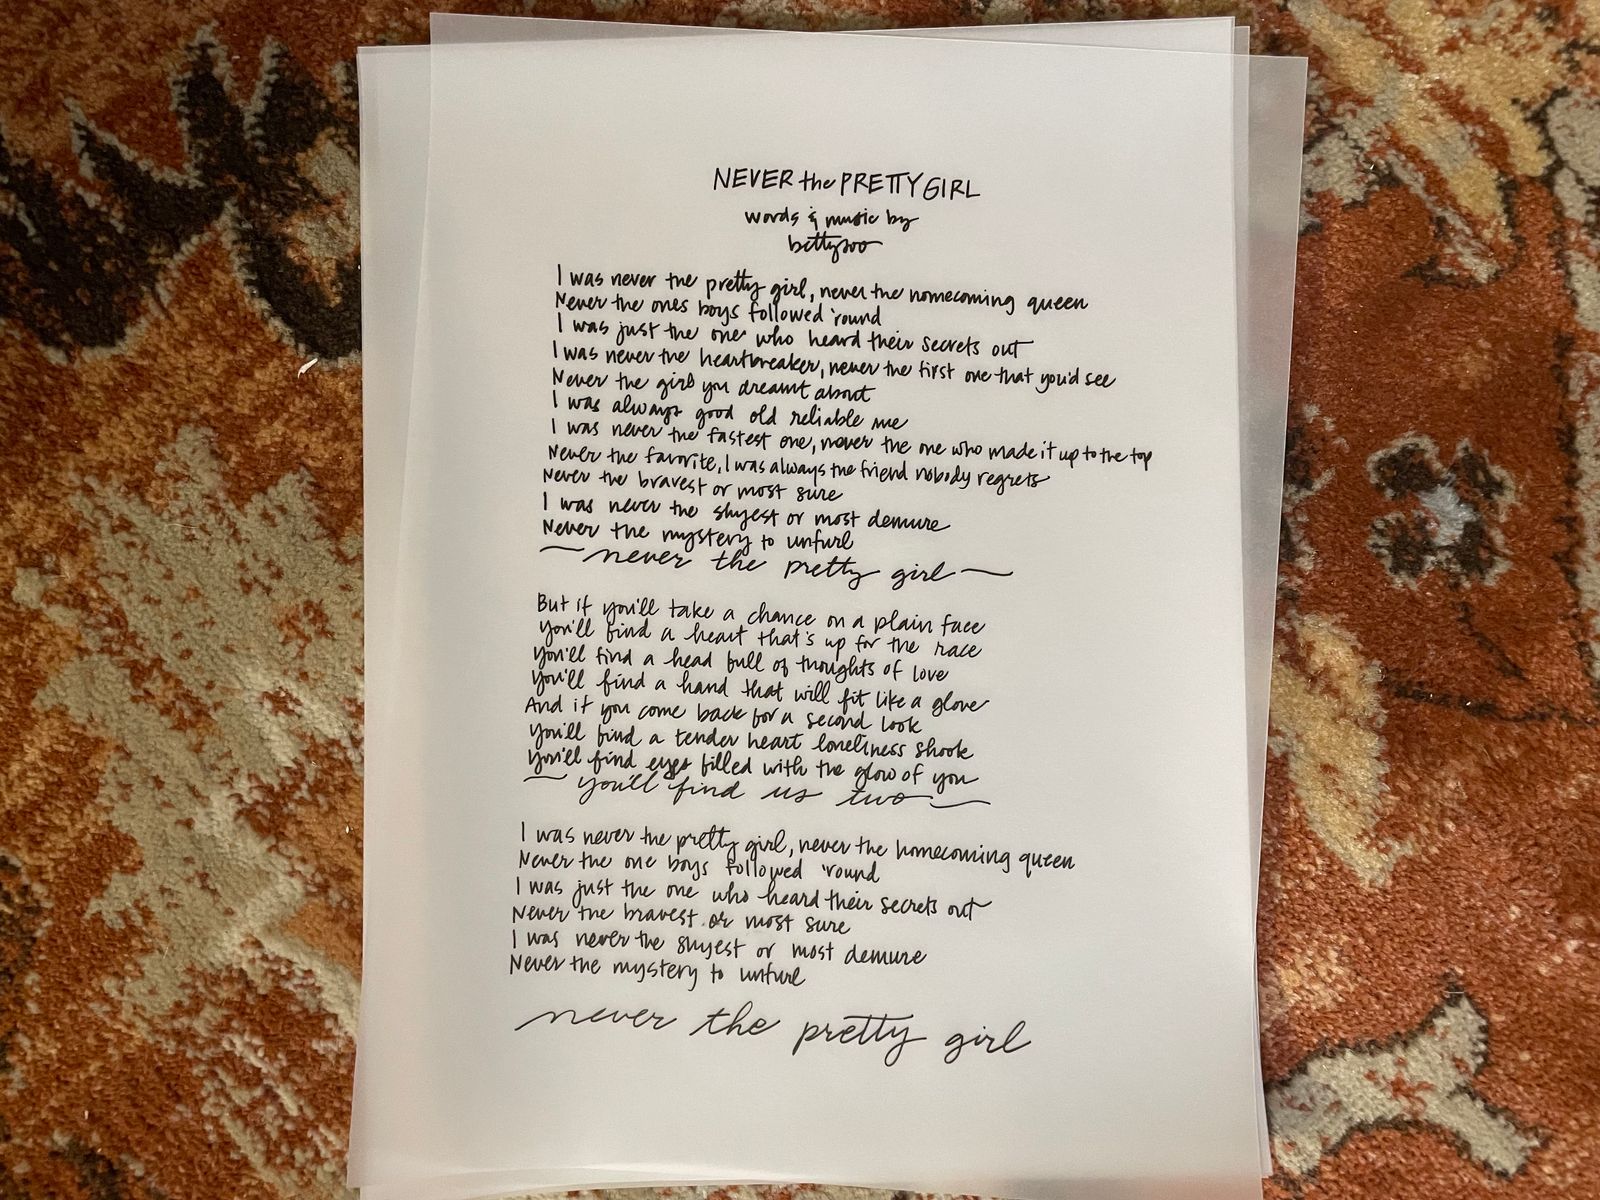 NEVER the PRETTY GIRL
words & music by
bettysoo
I was never the pretty girl, never the homecoming queen
Never the ones boys followed 'round
I was just the one who heard their secrets out
I was never the heartbreaker, never the first one that you'd see
Never the girls you dreamt about
I was always good old reliable me
I was never the fastest one, never the one who made it up to the top
Never the favorite, I was always the friend nobody regrets
Never the bravest or most sure
I was never the shyest or most demure
Never the mystery to unfurl
never the pretty girl
But if you'll take a chance on a plain face
You'll find a heart that's up for the race
You'll find a head full of thoughts of love
You'll find a hand that will fit like a glove
And if you come back for a second look
You'll find a tender heart loneliness shook
You'll find eyes filled with the glow of you
you'll find us two
I was never the pretty girl, never the homecoming queen
Never the one boys followed 'round
I was just the one who heard their secrets out
Never the bravest or most sure
I was never the shyest or most demure
Never the mystery to unfurl
never the pretty girl